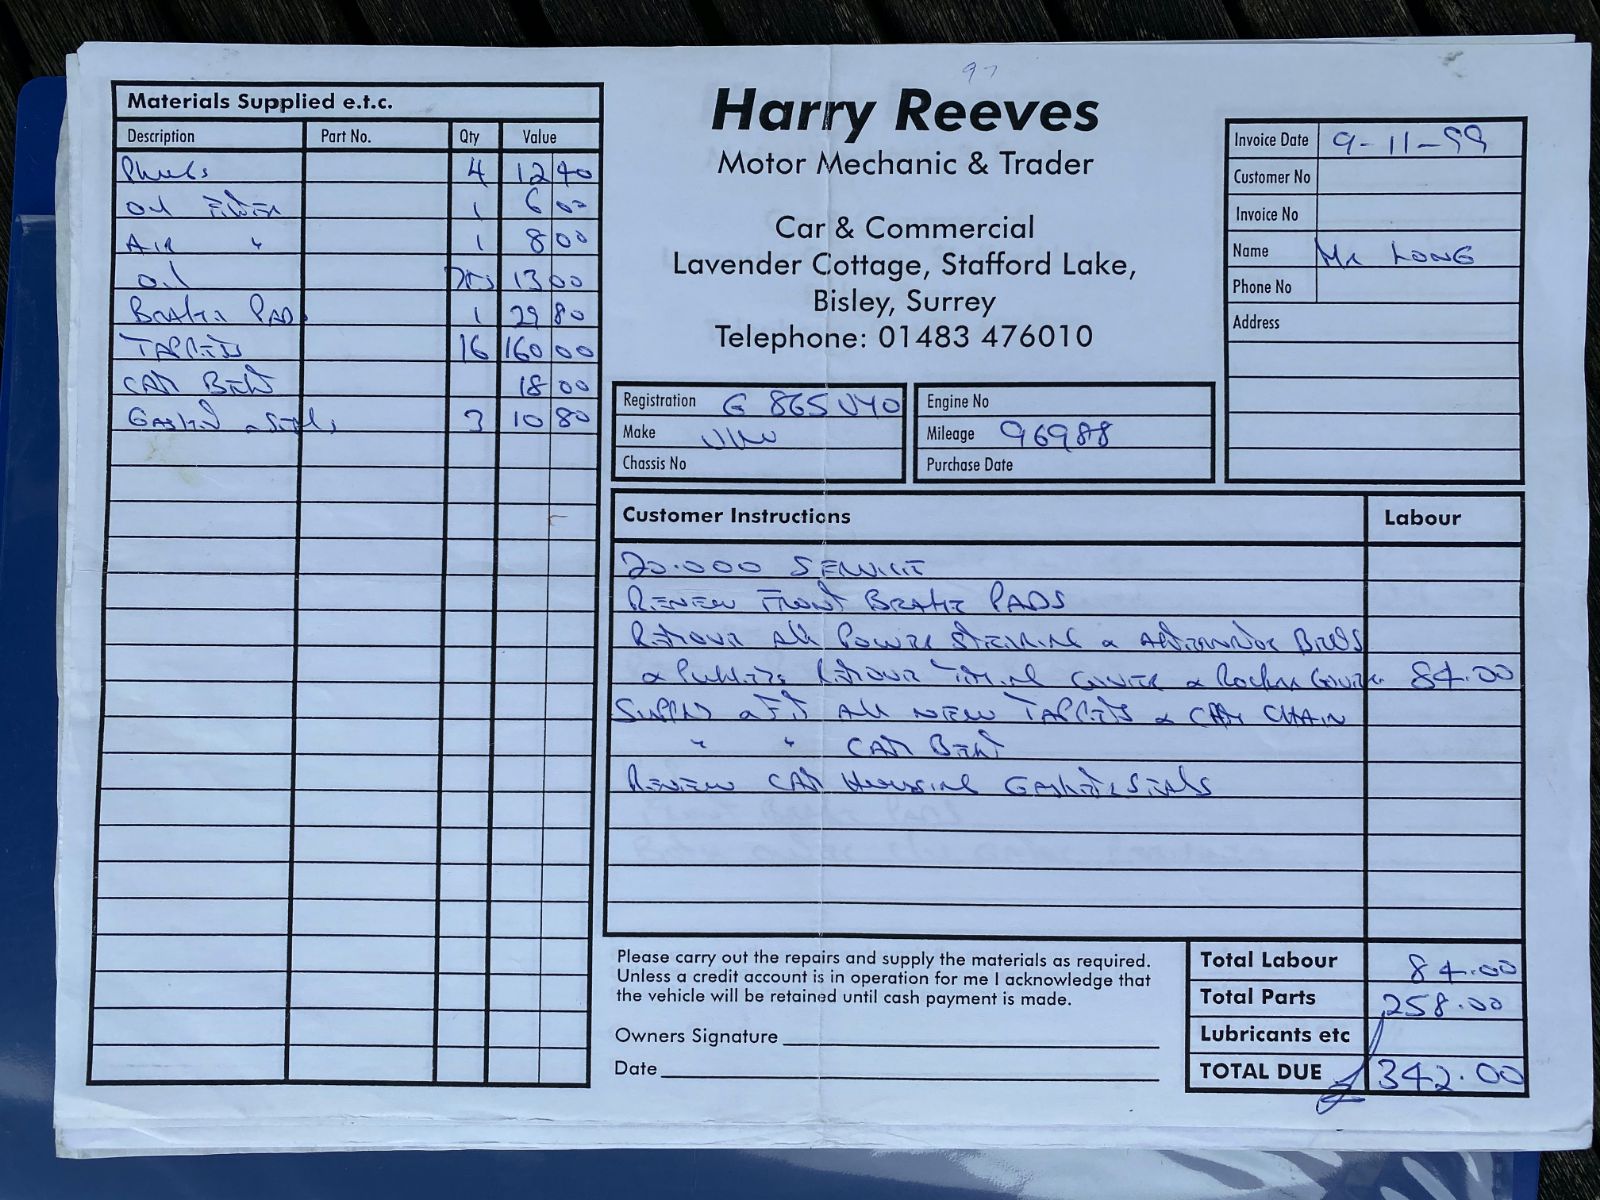 97
Materials Supplied e.t.c.
Description Part No. Qty Value
Plugs 4 12 40
Oil Filter 1 6 00
Air " 1 8 00
Oil 13 00
Brake Pads 1 29 80
Tappets 16 160 00
Cam Belt 18 00
Gasket & Seals 3 10 80
Harry Reeves
Motor Mechanic & Trader
Car & Commercial
Lavender Cottage, Stafford Lake,
Bisley, Surrey
Telephone: 01483 476010
Invoice Date 9-11-99
Customer No
Invoice No
Name Mr Long
Phone No
Address
Registration G 865 UYO
Make
Chassis No
Engine No
Mileage 96988
Purchase Date
Customer Instructions Labour
20.000 Service
Renew Front Brake Pads
Remove all Power Steering & Alternator Belts
& Pulleys Remove Timing Cover & Rocker Cover 84.00
Supply & Fit all new Tappets & Cam Chain
" " Cam Belt
Renew Cam Housing Gasket & Seals
Please carry out the repairs and supply the materials as required.
Unless a credit account is in operation for me I acknowledge that
the vehicle will be retained until cash payment is made.
Owners Signature
Date
Total Labour 84.00
Total Parts 258.00
Lubricants etc
TOTAL DUE 342.00